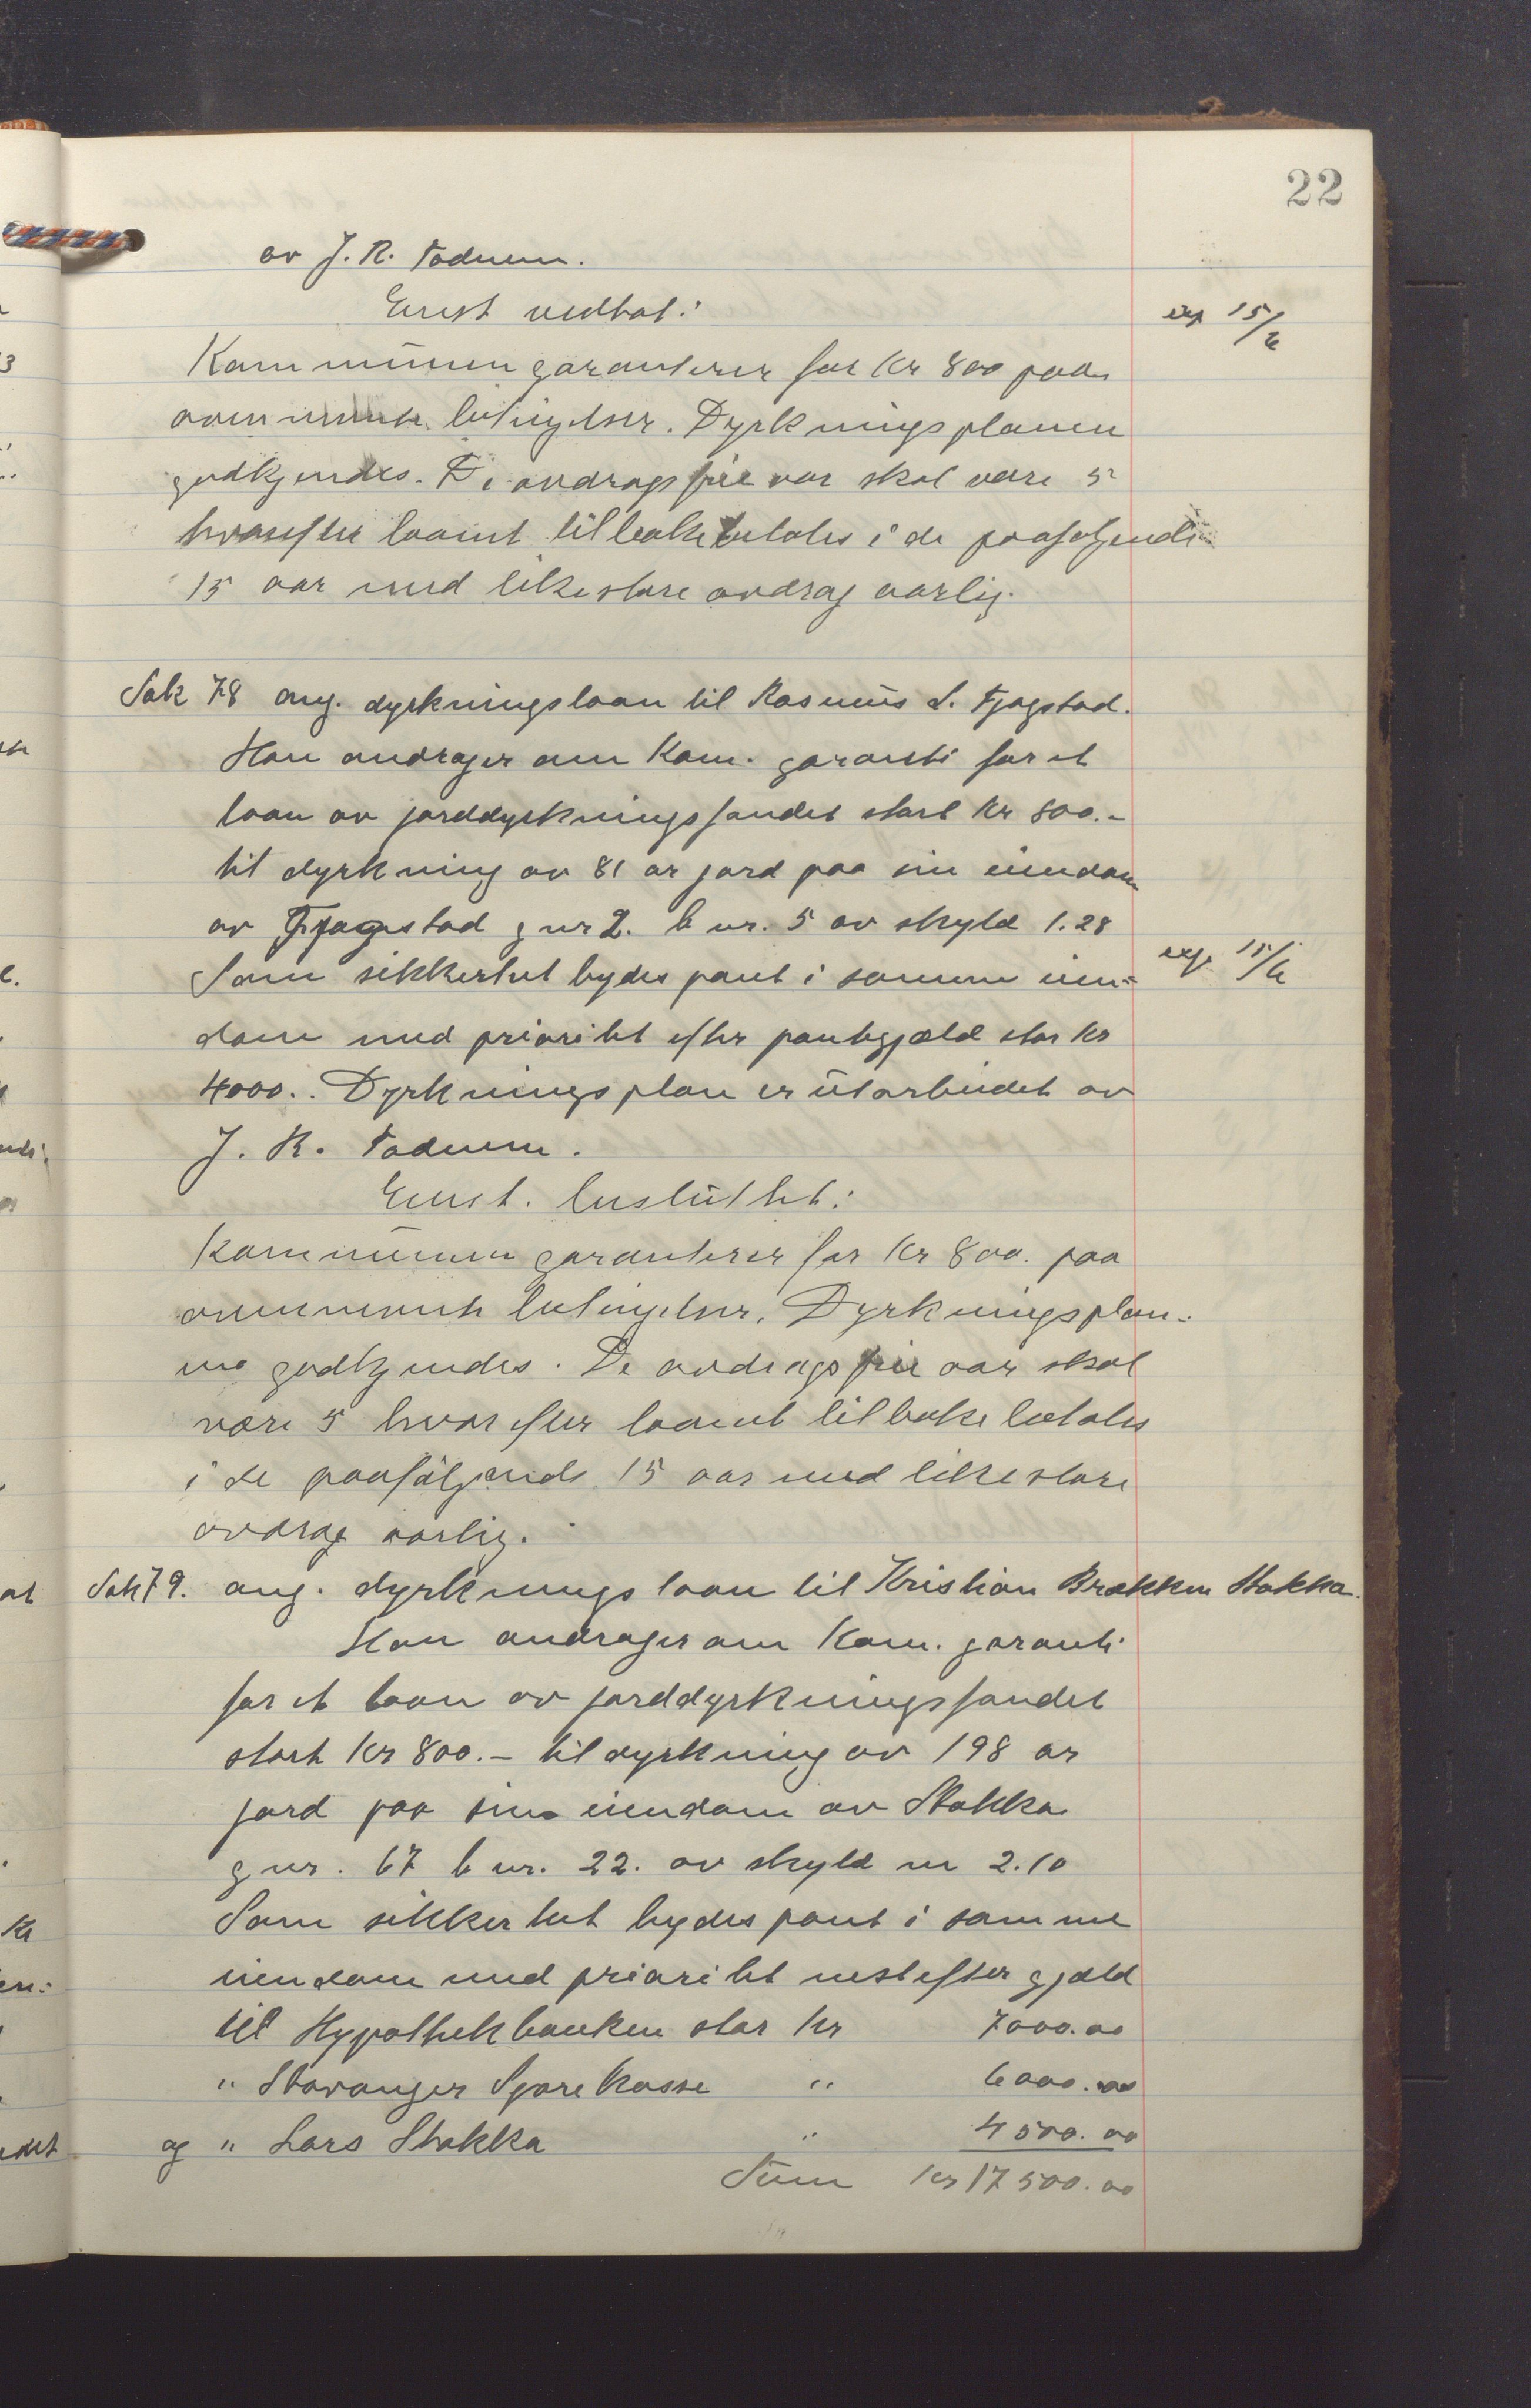 22
av J. R. Todnem.
Enst vedtat:
exp 15/6
Kommunen garanterer for Kr 800 paa
ovennevnte betingelser. Dyrkningsplanen
godkjendes. De avdragsfrie aar skal være 5
hvorefter laanet tilbakebetales i de paafølgende
15 aar med likestore avdrag aarlig.
Sak 78 ang. dyrkningslaan til Rasmus S. Fjogstad.
Han andrager om Kom. garanti for et
laan av jorddyrkningsfondet stort Kr 800.-
til dyrkning av 81 ar jord paa sin eiendom
av Fjogstad gnr 2. b nr. 5 av skyld 1.28
Som sikkerhet bydes pant i samme eien=
exp 15/6
dom med prioritet efter pantegjæld stor kr
4000.. Dyrkningsplan er utarbeidet av
J. R. Todnem.
Enst. besluttet:
Kommunen garanterer for Kr 800. paa
ovennevnte betingelser. Dyrkningsplan-
ne godkjendes. De avdragsfrie aar skal
være 5 hvorefter laanet tilbakebetales
i de paafølgende 15 aar med likestore
avdrag aarlig.
Sak 79. ang. dyrkningslaan til Kristian Brækken Stokka.
Han andrager om Kom. garanti
for et laan av jorddyrkningsfondet
stort Kr 800.- til dyrkning av 198 ar
jord paa sin eiendom av Stokka
gnr. 67 b nr. 22. av skyld m 2.10
Som sikkerhet bydes pant i samme
eiendom med prioritet nest efter gjæld
til Hypothekbanken stor Kr 7000.00
" Stavanger Sparekasse " 6000.00
og " Lars Stokka " 4500.00
Sum Kr 17500.00